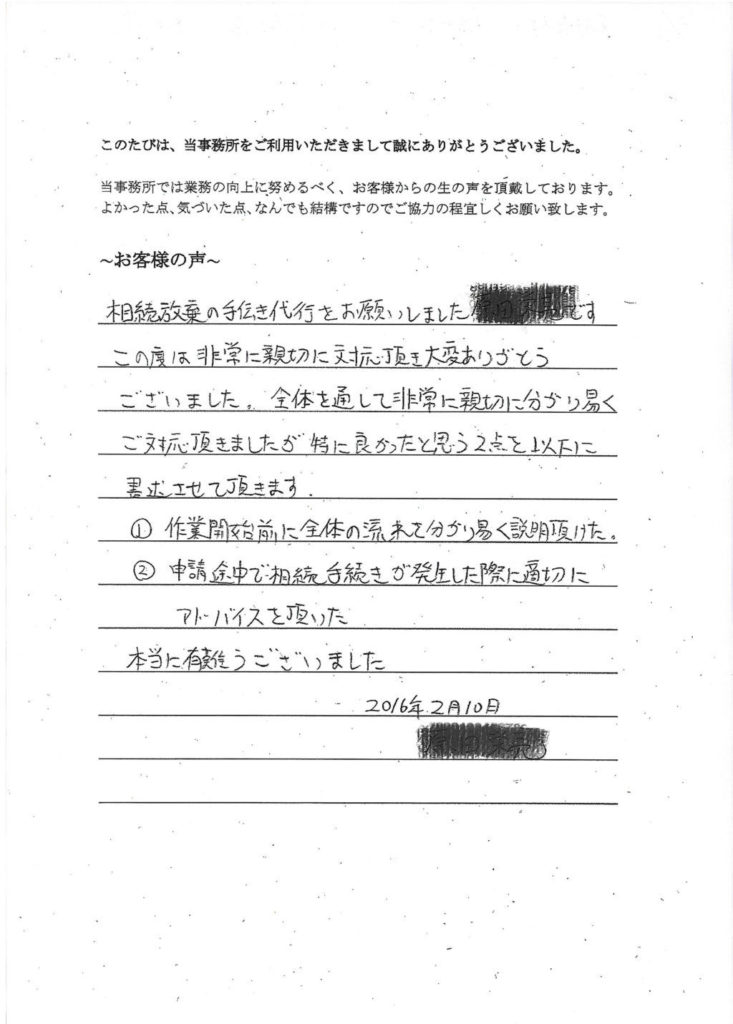 このたびは、当事務所をご利用いただきまして誠にありがとうございました。
当事務所では業務の向上に努めるべく、お客様からの生の声を頂戴しております。
よかった点、気づいた点、なんでも結構ですのでご協力の程宜しくお願い致します。
~お客様の声~
相続放棄の手伝き代行をお願いしました です
この度は非常に親切に対応頂き大変ありがとう
ございました。全体を通して非常に親切に分かり易く
ご対応頂きましたが特に良かったと思う2点を以下に
書述させて頂きます.
① 作業開始前に全体の流れを分かり易く説明頂けた。
② 申請途中で相続手続きが発生した際に適切に
アドバイスを頂いた
本当に有難うございました
2016年2月10日